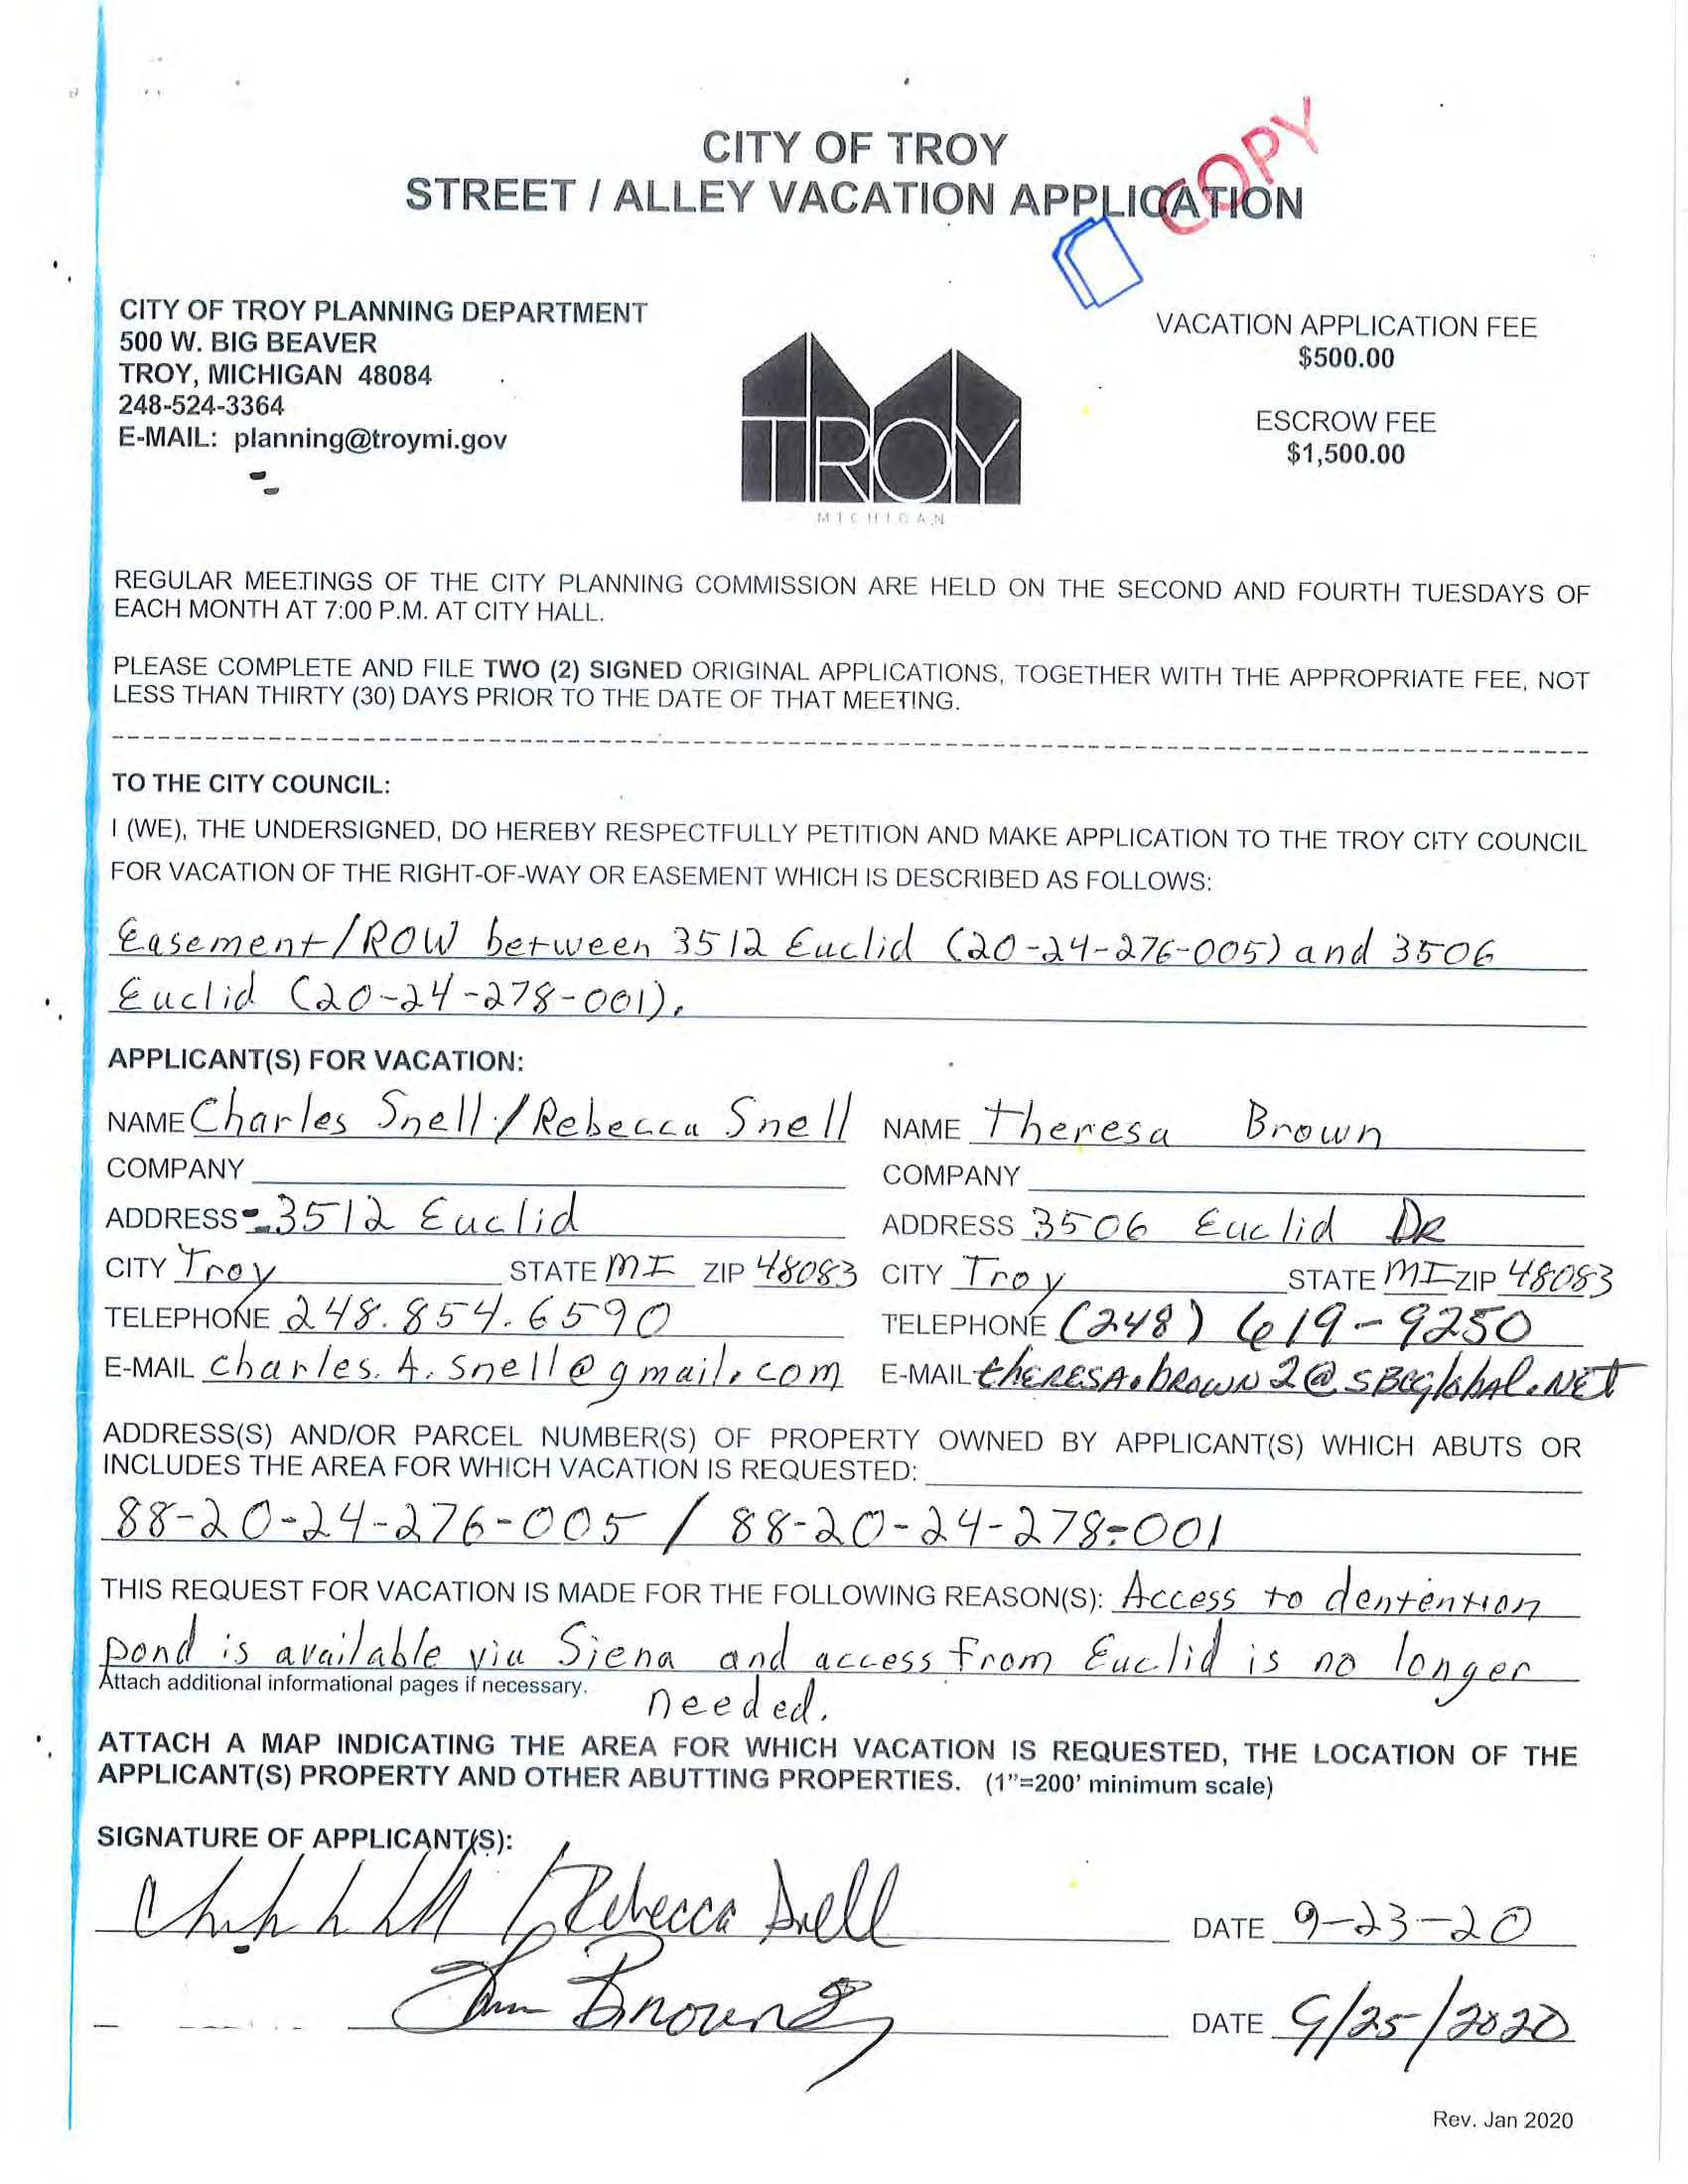 CITY OF TROY
STREET / ALLEY VACATION APPLICATION
COPY
CITY OF TROY PLANNING DEPARTMENT
500 W. BIG BEAVER
TROY, MICHIGAN 48084
248-524-3364
E-MAIL: planning@troymi.gov
TROY
MICHIGAN
VACATION APPLICATION FEE
$500.00
ESCROW FEE
$1,500.00
REGULAR MEETINGS OF THE CITY PLANNING COMMISSION ARE HELD ON THE SECOND AND FOURTH TUESDAYS OF
EACH MONTH AT 7:00 P.M. AT CITY HALL.
PLEASE COMPLETE AND FILE TWO (2) SIGNED ORIGINAL APPLICATIONS, TOGETHER WITH THE APPROPRIATE FEE, NOT
LESS THAN THIRTY (30) DAYS PRIOR TO THE DATE OF THAT MEETING.
TO THE CITY COUNCIL:
I (WE), THE UNDERSIGNED, DO HEREBY RESPECTFULLY PETITION AND MAKE APPLICATION TO THE TROY CITY COUNCIL
FOR VACATION OF THE RIGHT-OF-WAY OR EASEMENT WHICH IS DESCRIBED AS FOLLOWS:
Easement/ROW between 3512 Euclid (20-24-276-005) and 3506
Euclid (20-24-278-001).
APPLICANT(S) FOR VACATION:
NAME Charles Snell / Rebecca Snell NAME Theresa Brown
COMPANY COMPANY
ADDRESS 3512 Euclid ADDRESS 3506 Euclid DR
CITY Troy STATE MI ZIP 48083 CITY Troy STATE MI ZIP 48083
TELEPHONE 248.854.6590 TELEPHONE (248) 619-9250
E-MAIL charles.A.snell@gmail.com E-MAIL theresA.brown2@SBCglobAl.NET
ADDRESS(S) AND/OR PARCEL NUMBER(S) OF PROPERTY OWNED BY APPLICANT(S) WHICH ABUTS OR
INCLUDES THE AREA FOR WHICH VACATION IS REQUESTED:
88-20-24-276-005 / 88-20-24-278-001
THIS REQUEST FOR VACATION IS MADE FOR THE FOLLOWING REASON(S): Access to dentention
pond is available via Siena and access from Euclid is no longer
Attach additional informational pages if necessary. needed.
ATTACH A MAP INDICATING THE AREA FOR WHICH VACATION IS REQUESTED, THE LOCATION OF THE
APPLICANT(S) PROPERTY AND OTHER ABUTTING PROPERTIES. (1"=200' minimum scale)
SIGNATURE OF APPLICANT(S):
/ Rebecca Snell DATE 9-23-20
Brown DATE 9/25/2020
Rev. Jan 2020